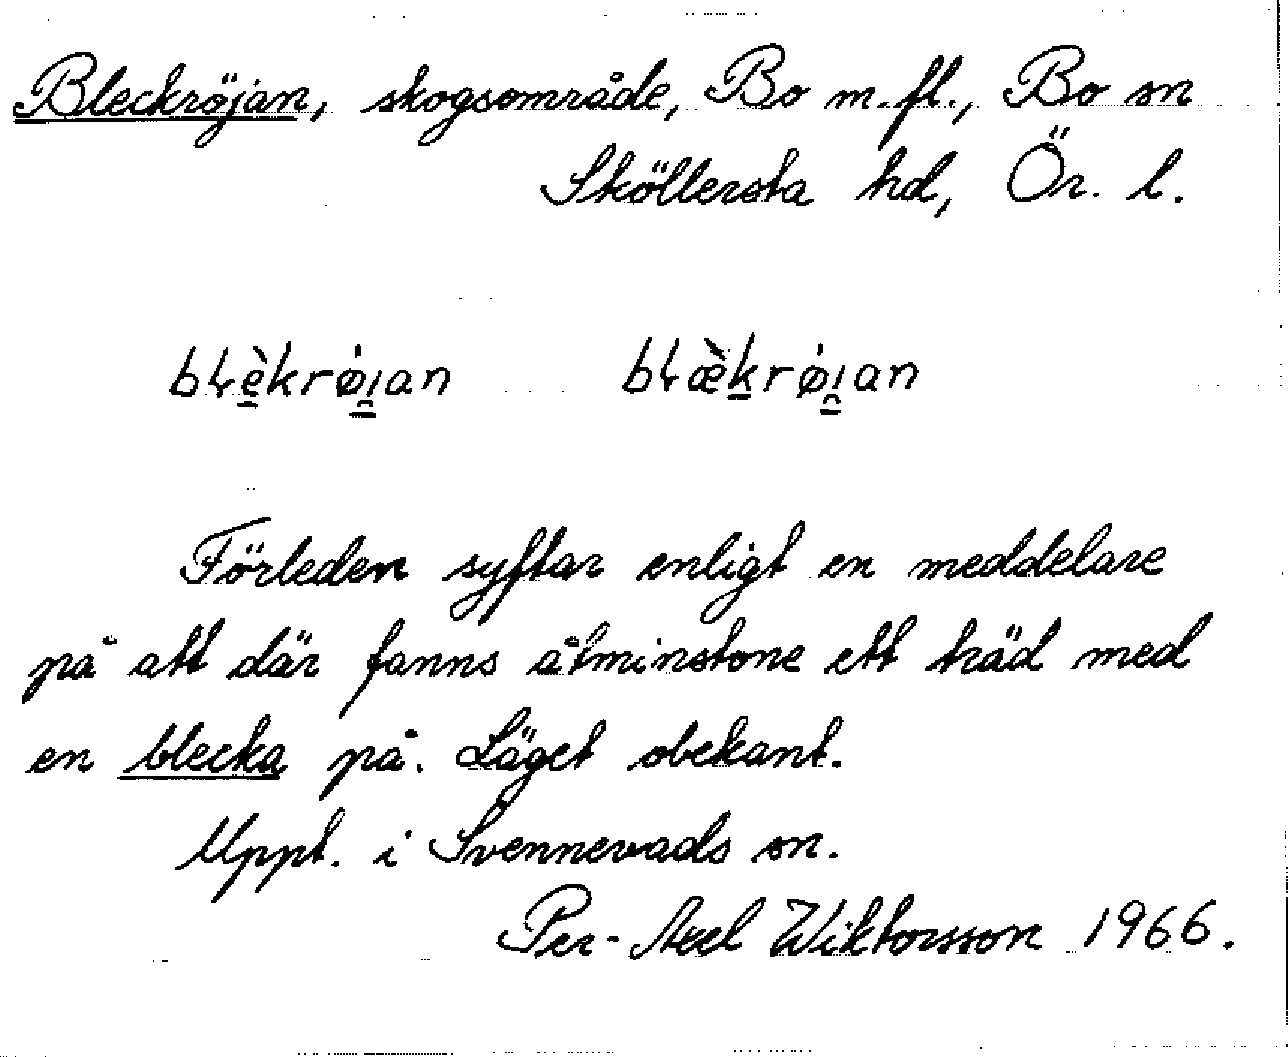 Bleckröjan, skogsområde, Bo m.fl., Bo sn
Sköllersta hd, Ör. l.
bɫè̠krǿı̯an bɫæ̀k̠rǿı̯an
Förleden syftar enligt en meddelare
på att där fanns åtminstone ett träd med
en blecka på. Läget obekant.
Uppt. i Svennevads sn.
Per-Axel Wiktorsson 1966.